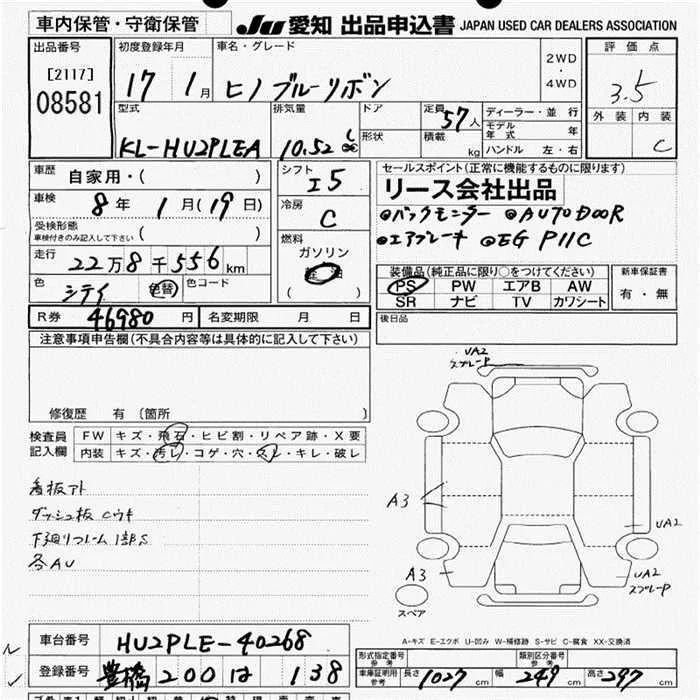 車内保管・守衛保管
JU 愛知 出品申込書 JAPAN USED CAR DEALERS ASSOCIATION
出品番号 初度登録年月 車名・グレード 評価点
[2117] 17 1月 ヒノブルーリボン 2WD・4WD 3.5
08581
型式 排気量 ドア 定員 57人 ディーラー・並行 外装 内装
KL-HU2PLEA 10.52 ℓ 形状 積載 kg モデル年式 年 C
ハンドル 左・右
車歴 自家用・( )
シフト I5
セールスポイント(正常に機能するものに限ります)
リース会社出品
車検 8年 1月(19日)
冷房 C
●バックモニター ●AUTO DOOR
受検形態
車検付きのみ記入して下さい ( )
燃料 ガソリン
( )
●エアブレーキ ●EG P11C
走行 22万8千556km
装備品(純正品に限り○をつけてください) 新車保証書
色 シテイ 色替 色コード
PS PW エアB AW 有・無
SR ナビ TV カワシート
R券 46980円 名変期限 月 日
後日品
注意事項申告欄(不具合内容等は具体的に記入して下さい)
修復歴 有 (箇所 )
UA2
スプレーP
検査員記入欄 FW キズ・飛石・ヒビ割・リペア跡・X要
内装 キズ・汚レ・コゲ・穴・スレ・キレ・破レ
看板アト
ダッシュ板 Cウキ
下廻リフレーム1部S
各AU
A3
UA2
A3
UA2
スプレーP
スペア
A-キズ E-エクボ U-凹み W-補修跡 S-サビ C-腐食 XX-交換済
車台番号 HU2PLE-40268
型式指定番号 参考 類別区分番号 参考
登録番号 豊橋 200 は 138
車庫証明用参考 長さ 1027cm 幅 249cm 高さ 297cm